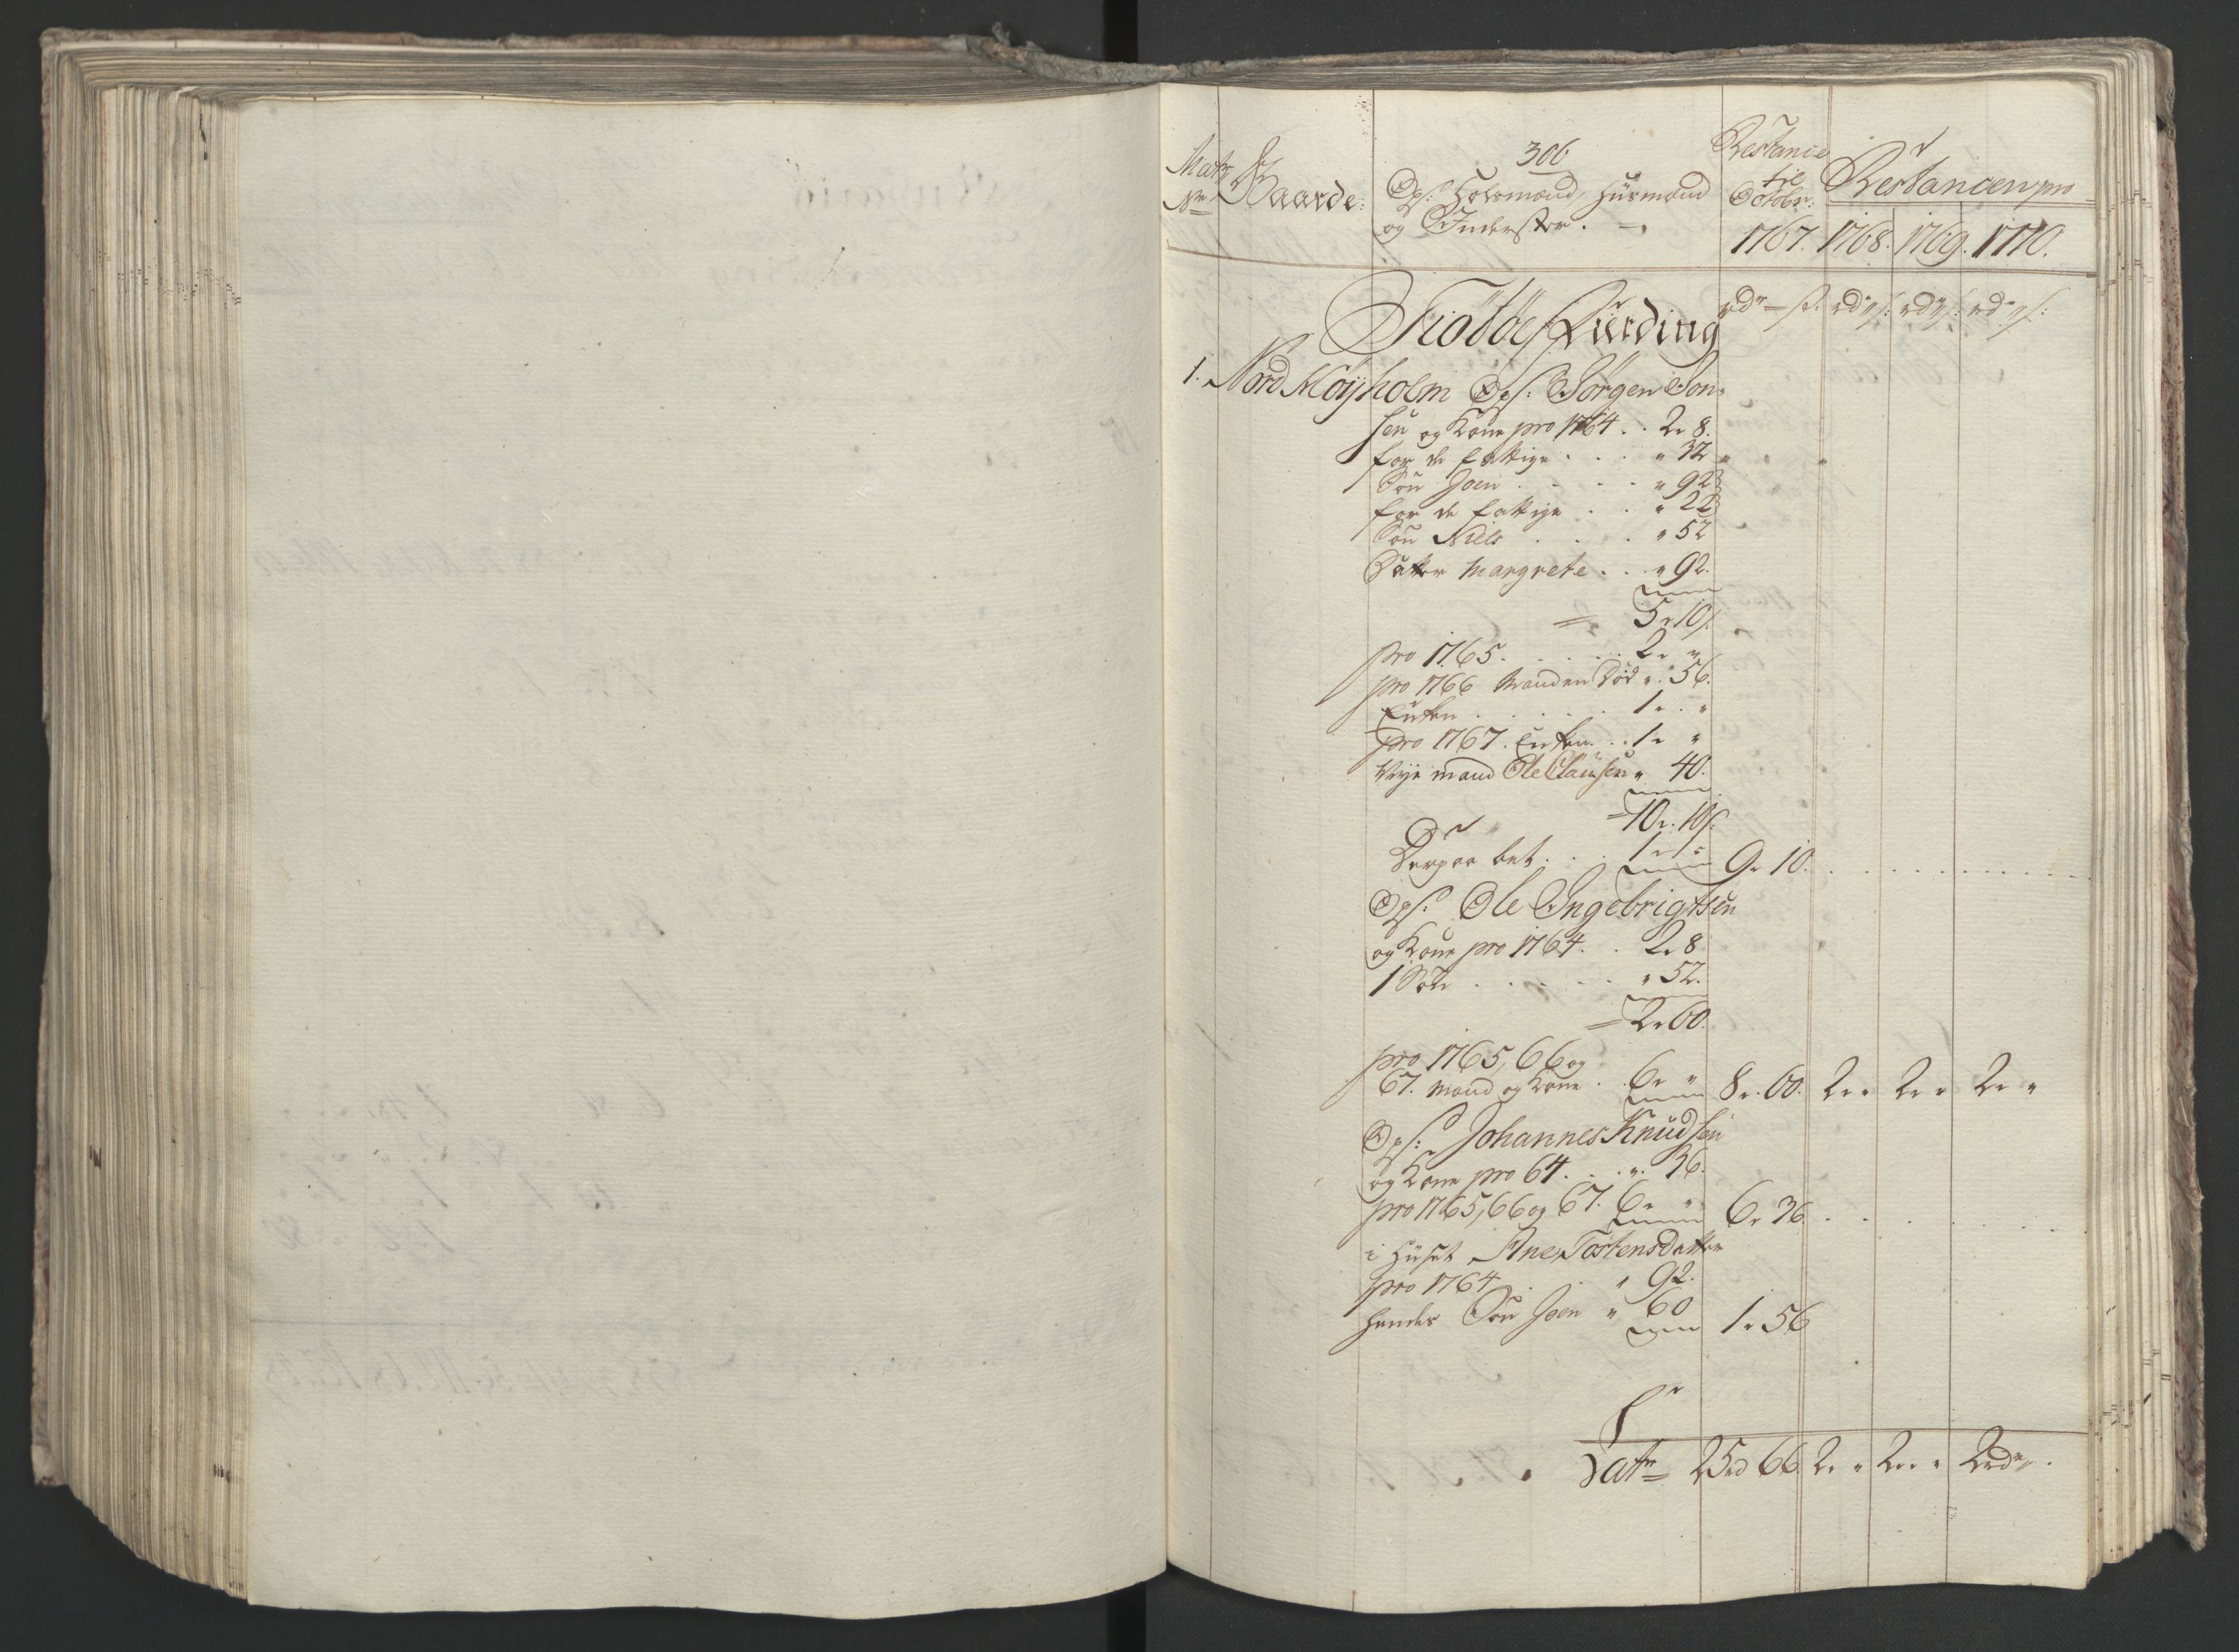 306
Matr
No
Gaarde:
Ops: Holsmænd, Huusmænd
og Inderster.
Restance
til
Octobr:
1767.
Restancen pro
1768. 1769. 1770.
Fiøtøf Fierding
rdr s. rdr s: rdr s: rdr s:
1. Nord Høyholm Ops: Jørgen Jon-
sen og Kone pro 1764 . . 2 " 8.
for de fattige . . . " 32
Søn Joen . . . . " 92
for de fattige . . " 22
Søn Niels . . . . " 52
Datter Margrete . . . " 92.
= 5 " 10 s.
pro 1765. . . . . . 2 " "
pro 1766 Manden død " . 56.
Enken . . . . . 1 " . "
pro 1767. Enken . . . 1 " "
Nye mand Ole Clausen " 40.
= 10 " . 10 s:
Derpaa bet. . . . 1 " " 9 " 10.
Ops: Ole Ingebrigtsen
og Kone pro 1764. . 2 " 8
1 Søn . . . . . " 52.
= 2 " 60.
pro 1765, 66 og
67. Mand og Kone . 6 " " 8 " . 60. 2 " " 2 " " 2 " "
Ops: Johannes Knudsen
og Kone pro 64. . . " . 36.
pro 1765, 66 og 67. 6 " " 6 " 36.
i Huset Ane Tostensdatter
pro 1764 . . " 92.
hendes Søn Joen " 60 1 " 56
Latr 25 rd 66 2 " " 2 " " 2 rdr " .